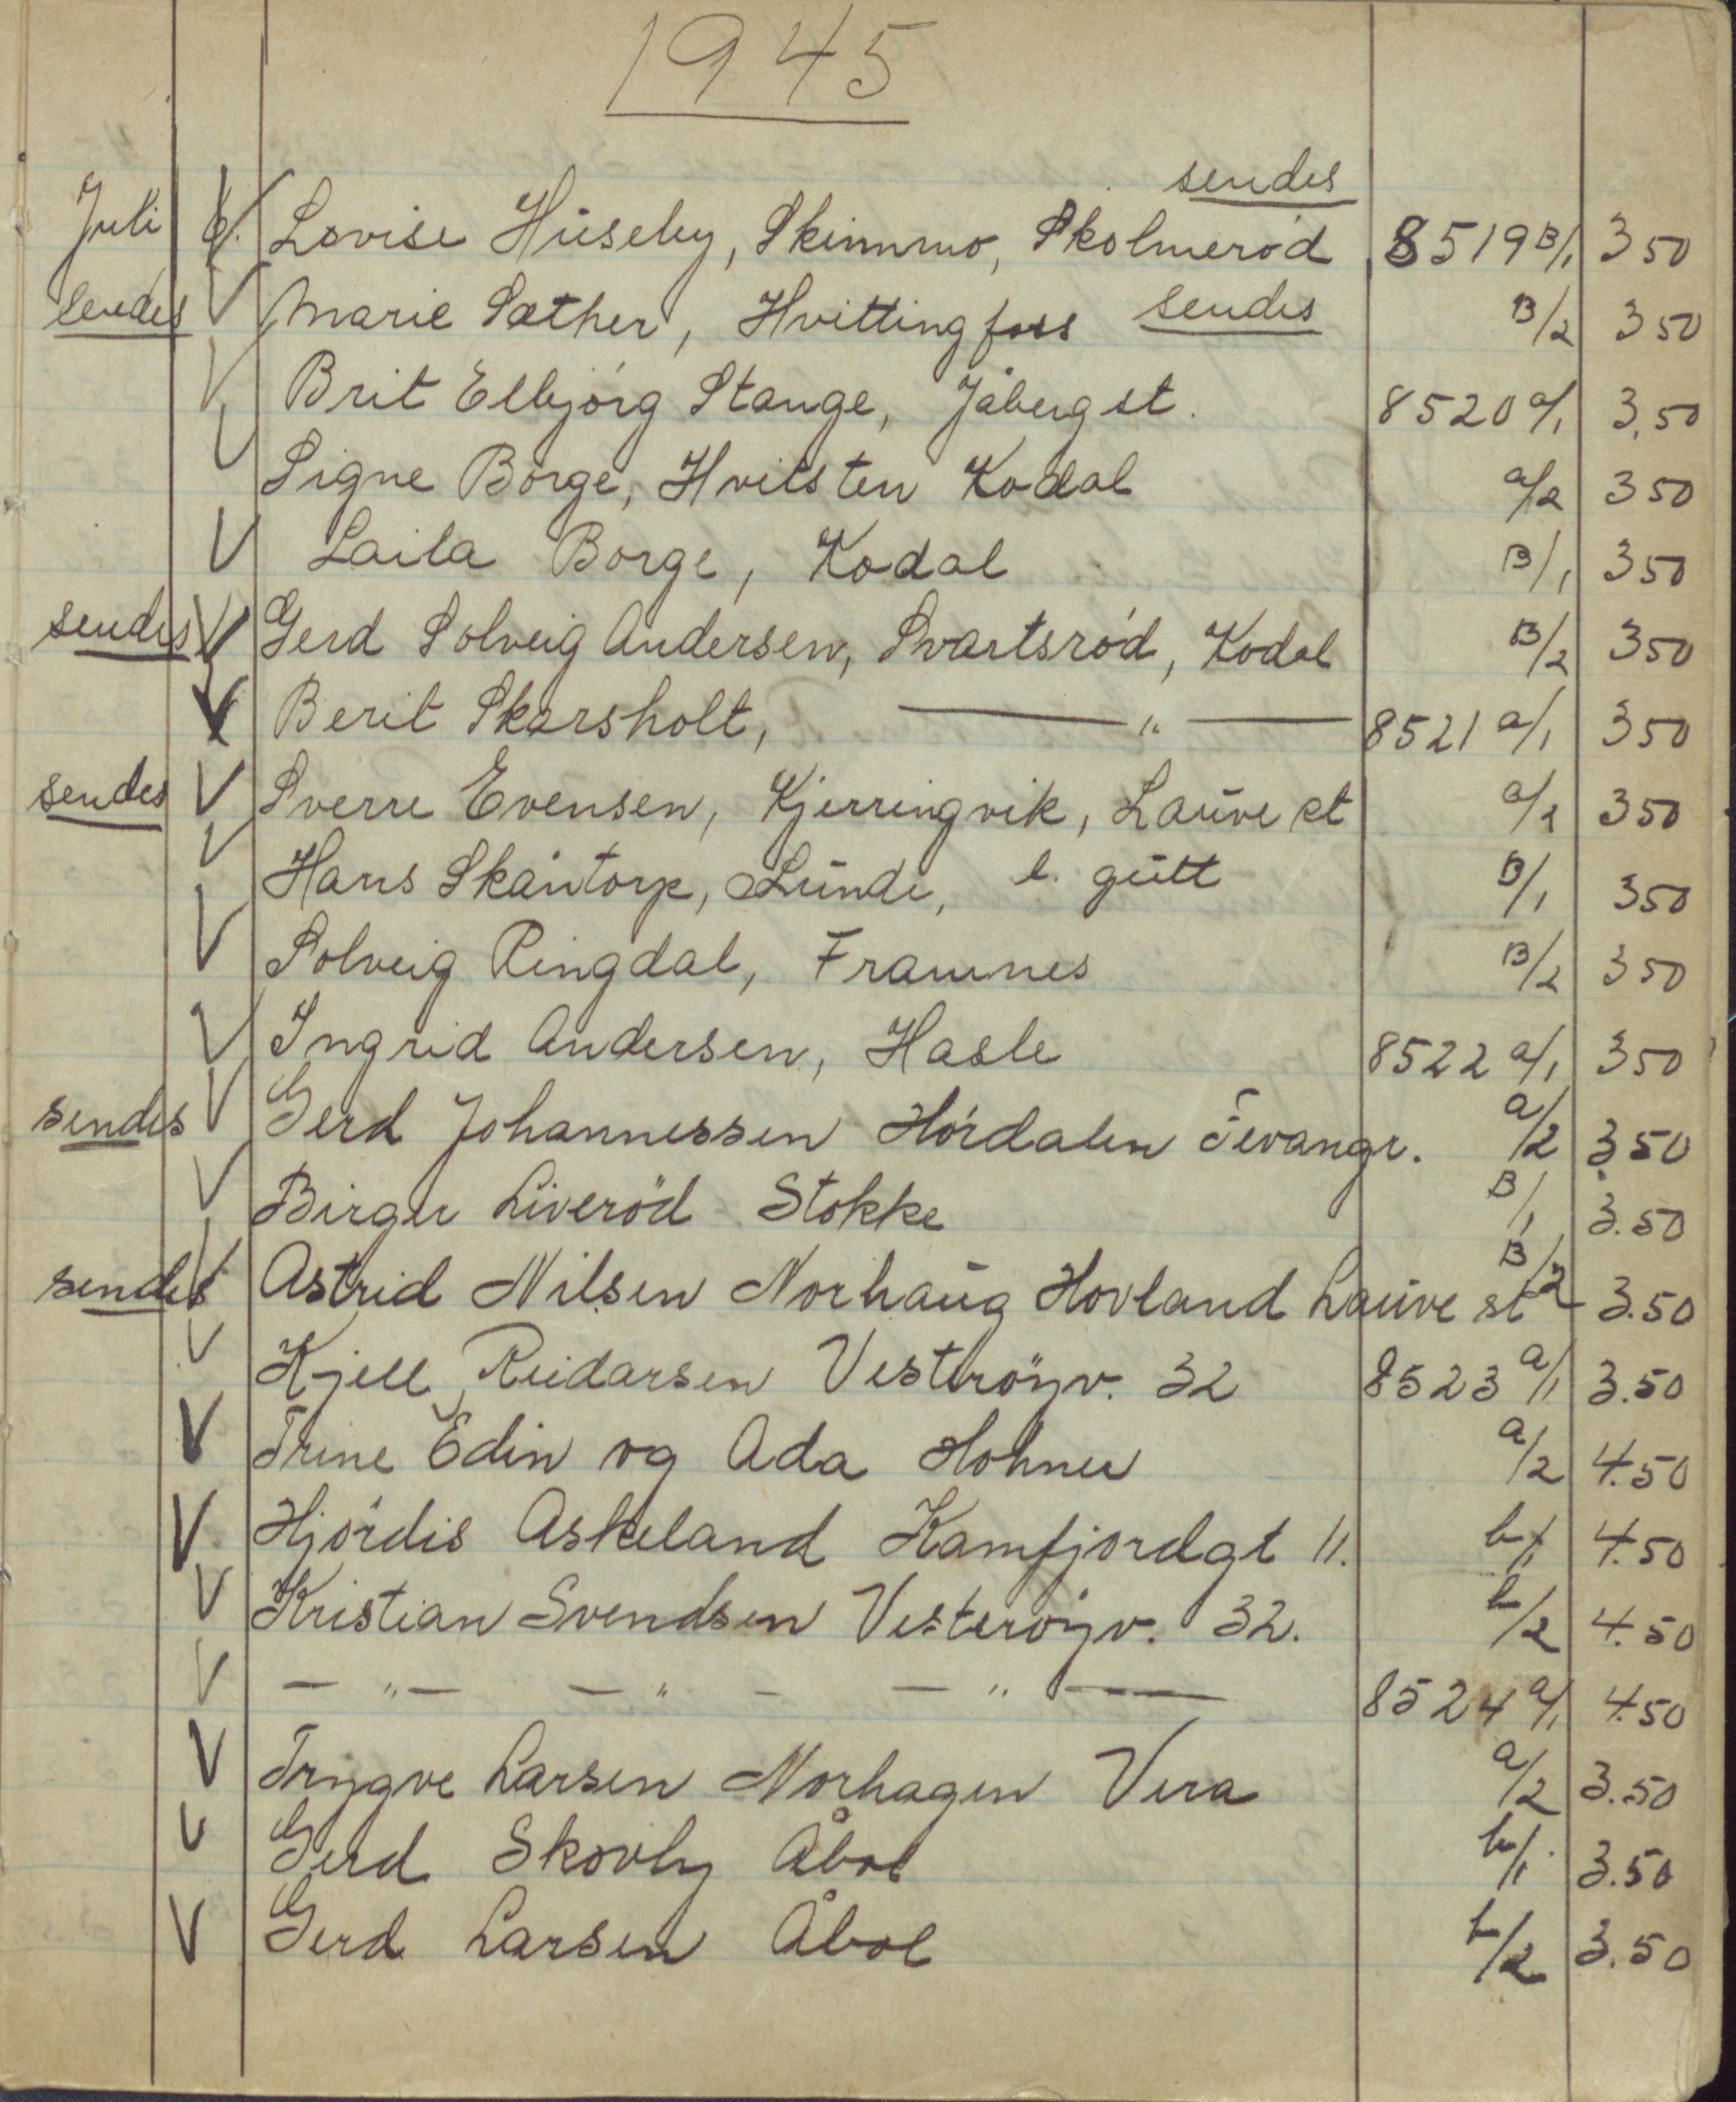 1945
sendes
Juli 6. Lovise Huseby, Skinmo, Skolmerød 8519 B/1 3 50
sendes V Marie Sæther, Hvittingfoss sendes B/2 3 50
V Brit Elbjørg Stange, Jåberg st. 8520 a/1 3,50
V Signe Borge, Hvitsten Kodal a/2 3 50
V Laila Borge, Kodal B/1 3 50
sendes V Gerd Solveig Andersen, Svartsrød, Kodal B/2 3 50
V Berit Skarsholt, — " — 8521 a/1 3 50
sendes V Sverre Evensen, Kjerringvik, Lauve st a/2 3 50
V Hans Skåntorp, Lunde, l. gutt B/1 3 50
V Solveig Ringdal, Framnes B/2 3 50
V Ingrid Andersen, Hasle 8522 a/1 3 50
sendes V Gerd Johannessen Hørdalen Tevangr. a/2 3.50
V Birger Liverød Stokke B/1 3.50
sendes V Astrid Nilsen Norhaug Hovland Lauve st B/2 3.50
V Kjell Reidarsen Vesterøyv. 32 8523 a/1 3.50
V Trine Edin og Ada Hohner a/2 4.50
V Hjørdis Askeland Kamfjordgt 11. b/1 4.50
V Kristian Svendsen Vesterøyv. 32. b/2 4.50
V — " — — " — — " — 8524 a/1 4.50
V Trygve Larsen Norhagen Vera a/2 3.50
V Gerd Skovly Åbol b/1 3.50
V Gerd Larsen Åbol b/2 3.50